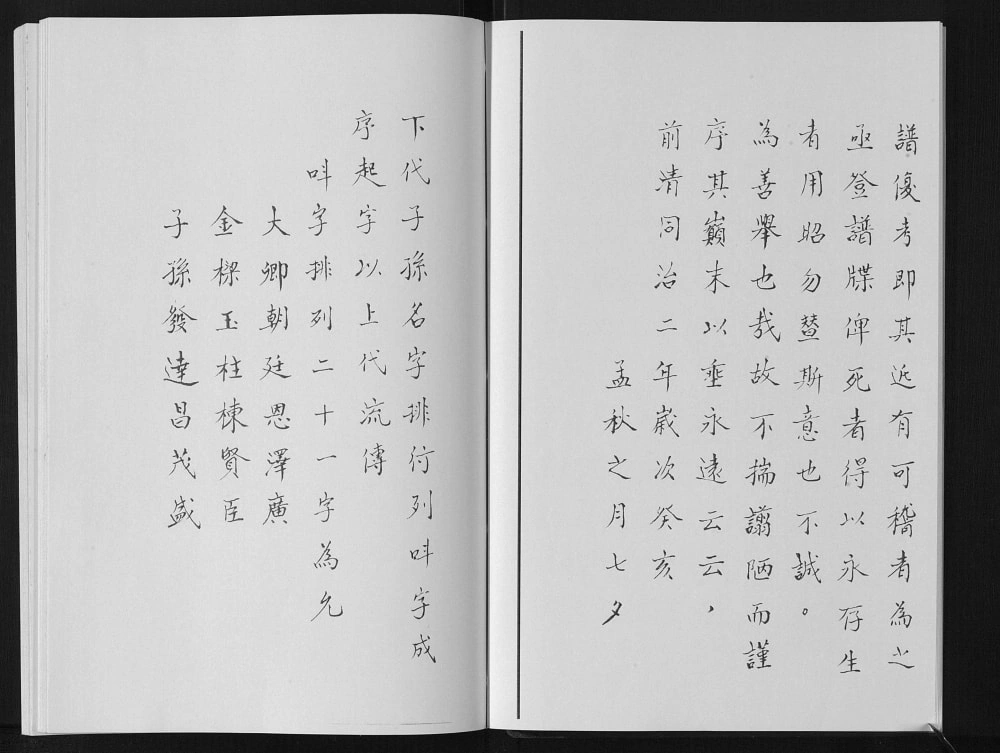 譜優考即其近有可稽者為之
亟登譜牒俾死者得以永存生
者用昭勿替斯意也不誠。
為善舉也哉故不揣譾陋而謹
序其巔末以垂永遠云云，
前清同治二年歲次癸亥
孟秋之月七夕
下代子孫名字排行列呌字成
序起字以上代流傳
呌字排列二十一字為允
大卿朝廷恩澤廣
金樑玉柱棟賢臣
子孫發達昌茂盛